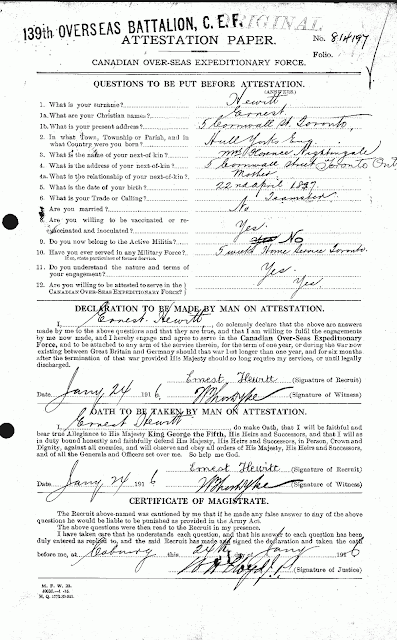 139th OVERSEAS BATTALION, C. E. F.
ORIGINAL
ATTESTATION PAPER.
No. 814197
Folio.
CANADIAN OVER-SEAS EXPEDITIONARY FORCE.
QUESTIONS TO BE PUT BEFORE ATTESTATION.
(ANSWERS)
1. What is your surname? Hewitt
1a. What are your Christian names? Ernest
1b. What is your present address? 5 Cornwall St Toronto,
2. In what Town, Township or Parish, and in what Country were you born? Hull Yorks Eng
3. What is the name of your next-of-kin? Mrs Florence Nightingale
4. What is the address of your next-of-kin? 5 Cornwall Street Toronto Ont
4a. What is the relationship of your next-of-kin? Mother
5. What is the date of your birth? 22nd April 1897
6. What is your Trade or Calling? Teamster
7. Are you married? No
8. Are you willing to be vaccinated or re-vaccinated and inoculated? Yes.
9. Do you now belong to the Active Militia? No
10. Have you ever served in any Military Force? 5 weeks Home Service Toronto.
If so, state particulars of former Service.
11. Do you understand the nature and terms of your engagement? Yes.
12. Are you willing to be attested to serve in the CANADIAN OVER-SEAS EXPEDITIONARY FORCE? Yes.
DECLARATION TO BE MADE BY MAN ON ATTESTATION.
I, Ernest Hewitt, do solemnly declare that the above are answers
made by me to the above questions and that they are true, and that I am willing to fulfil the engagements
by me now made, and I hereby engage and agree to serve in the Canadian Over-Seas Expeditionary
Force, and to be attached to any arm of the service therein, for the term of one year, or during the war now
existing between Great Britain and Germany should that war last longer than one year, and for six months
after the termination of that war provided His Majesty should so long require my services, or until legally
discharged.
Ernest Hewitt (Signature of Recruit)
Date Jany 24 1916 (Signature of Witness)
OATH TO BE TAKEN BY MAN ON ATTESTATION.
I, Ernest Hewitt, do make Oath, that I will be faithful and
bear true Allegiance to His Majesty King George the Fifth, His Heirs and Successors, and that I will as
in duty bound honestly and faithfully defend His Majesty, His Heirs and Successors, in Person, Crown and
Dignity, against all enemies, and will observe and obey all orders of His Majesty, His Heirs and Successors,
and of all the Generals and Officers set over me. So help me God.
Ernest Hewitt (Signature of Recruit)
Date Jany 24 1916 (Signature of Witness)
CERTIFICATE OF MAGISTRATE.
The Recruit above-named was cautioned by me that if he made any false answer to any of the above
questions he would be liable to be punished as provided in the Army Act.
The above questions were then read to the Recruit in my presence.
I have taken care that he understands each question, and that his answer to each question has been
duly entered as replied to, and the said Recruit has made and signed the declaration and taken the oath
before me, at Cobourg this 24th day of Jany 1916
(Signature of Justice)
M. F. W. 23.